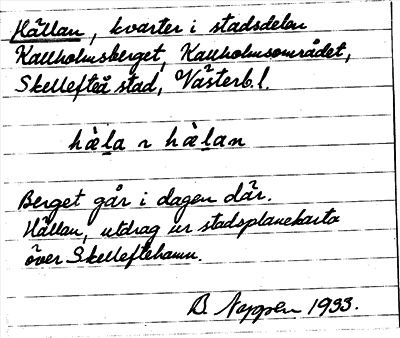 Hällan, kvarter i stadsdelen
Kallholmsberget, Kallholmsområdet,
Skellefteå stad, Västerb. l.
hæ̀la ~ hæ̀lan
Berget går i dagen där.
Hällan, utdrag ur stadsplanekarta
över Skelleftehamn.
B. 1933.